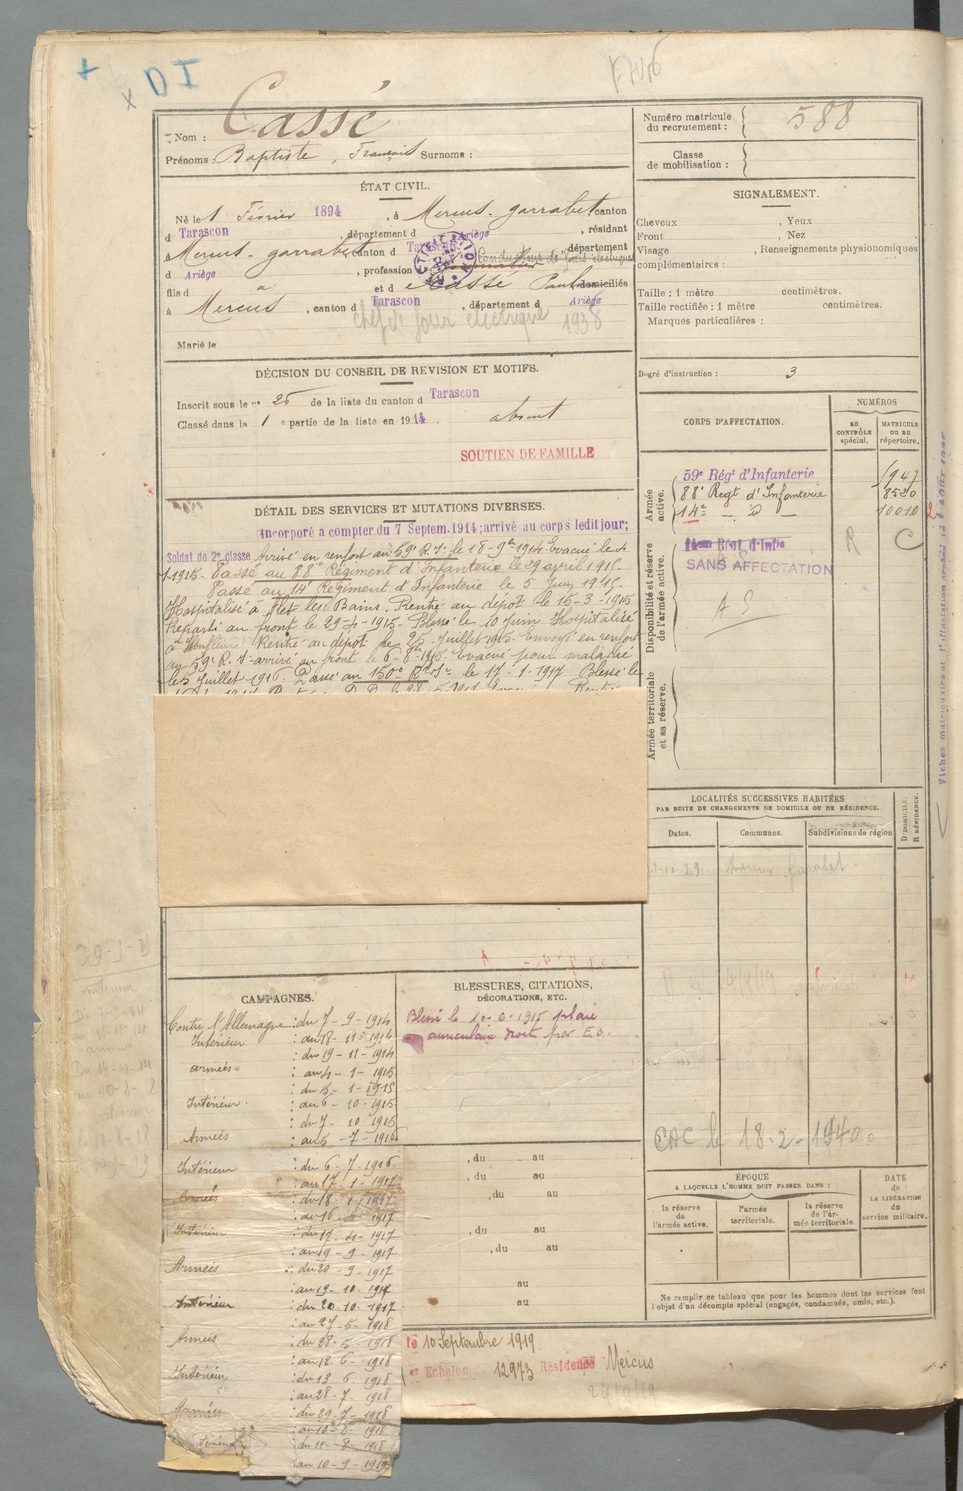 + D I
x
Nom : Cassé
Prénoms : Baptiste, François Surnoms :
Numéro matricule du recrutement : 588
Classe de mobilisation :
ÉTAT CIVIL.
Né le 1 Février 1894, à Mercus-garrabet canton
d Tarascon, département d Ariège, résidant
Mercus-garrabet canton d département
d Ariège, profession Conducteur de fours électriques
fils d et d Casse Paul domiciliés
à Mercus, canton d Tarascon, département d Ariège
chef de four électrique 1938
Marié le
SIGNALEMENT.
Cheveux , Yeux
Front , Nez
Visage , Renseignements physionomiques
complémentaires :
Taille : 1 mètre centimètres.
Taille rectifiée : 1 mètre centimètres.
Marques particulières :
Degré d'instruction : 3
DÉCISION DU CONSEIL DE REVISION ET MOTIFS.
Inscrit sous le n° 25 de la liste du canton d Tarascon
Classé dans la 1 e partie de la liste en 1914. absent
SOUTIEN DE FAMILLE
DÉTAIL DES SERVICES ET MUTATIONS DIVERSES.
Incorporé a compter du 7 Septem. 1914; arrivé au corps ledit jour;
Soldat de 2e classe Arrivé en renfort au 59e R.I. le 18-9bre 1914 Evacué le 4
-1-1915. Passé au 88e Régiment d'Infanterie le 29 avril 1915.
Passé au 14e Régiment d'Infanterie le 5 Juin 1915.
Hospitalisé à les Bains. Rentré au dépôt le 15-3-1915
Reparti au front le 29-4-1915. Blessé le 10 Juin Hospitalisé
à Honfleur Rentré au dépôt le 25 Juillet 1915 Envoyé en renfort
au 59e R.I. arrivé au front le 1915 Evacué pour maladie
le 5 Juillet 1916. Passé au 150e le 17-1-1917 Blessé le
CORPS D'AFFECTATION.
NUMÉROS
AU CONTRÔLE spécial.
MATRICULE OU AU répertoire.
Armée active.
59e Régt d'Infanterie 1947
88e Regt d'Infanterie 8530
14e _ d° _ 10010
Disponibilité et réserve de l'armée active.
R C
SANS AFFECTATION
A S
Armée territoriale et sa réserve.
LOCALITÉS SUCCESSIVES HABITÉES
PAR SUITE DE CHANGEMENTS DE DOMICILE OU DE RÉSIDENCE.
Dates. Communes. Subdivisions de région
D DOMICILE. R RÉSIDENCE.
29 Mercus Garabet
CAMPAGNES.
Contre l'Allemagne : du 7-9-1914
Intérieur : au 18-11-1914
: du 19-11-1914
armées : au 4-1-1915
: du 5-1-1915
Intérieur : au 6-10-1915
: du 7-10-1915
Armées : au 5-7-1916
Intérieur : du 6-7-1916
: au 17-1-1917
Armées : du 18-1-1917
: au 16-4-1917
Intérieur : du 17-4-1917
: au 19-9-1917
Armées : du 20-9-1917
: au 19-10-1917
Intérieur : du 20-10-1917
: au 27-5-1918
Armées : du 28-5-1918
: au 12-6-1918
Intérieur : du 13-6-1918
: au 28-7-1918
Armées : du 29-7-1918
: au 10-8-1918
Intérieur : du 11-8-1918
: au 10-9-1919
BLESSURES, CITATIONS,
DÉCORATIONS, ETC.
Blessé le 10-6-1915 plaie
auriculaire droit par E.O.
, du au
, du au
, du au
, du au
, du au
au
au
EAC le 18-2-1940
ÉPOQUE
A LAQUELLE L'HOMME DOIT PASSER DANS :
la réserve de l'armée active.
l'armée territoriale.
la réserve de l'armée territoriale.
DATE de LA LIBÉRATION du service militaire.
Ne remplir ce tableau que pour les hommes dont les services font
l'objet d'un décompte spécial (engagés, condamnés, omis, etc.).
le 10 Septembre 1919
er Echelon 12973 Résidence Mercus